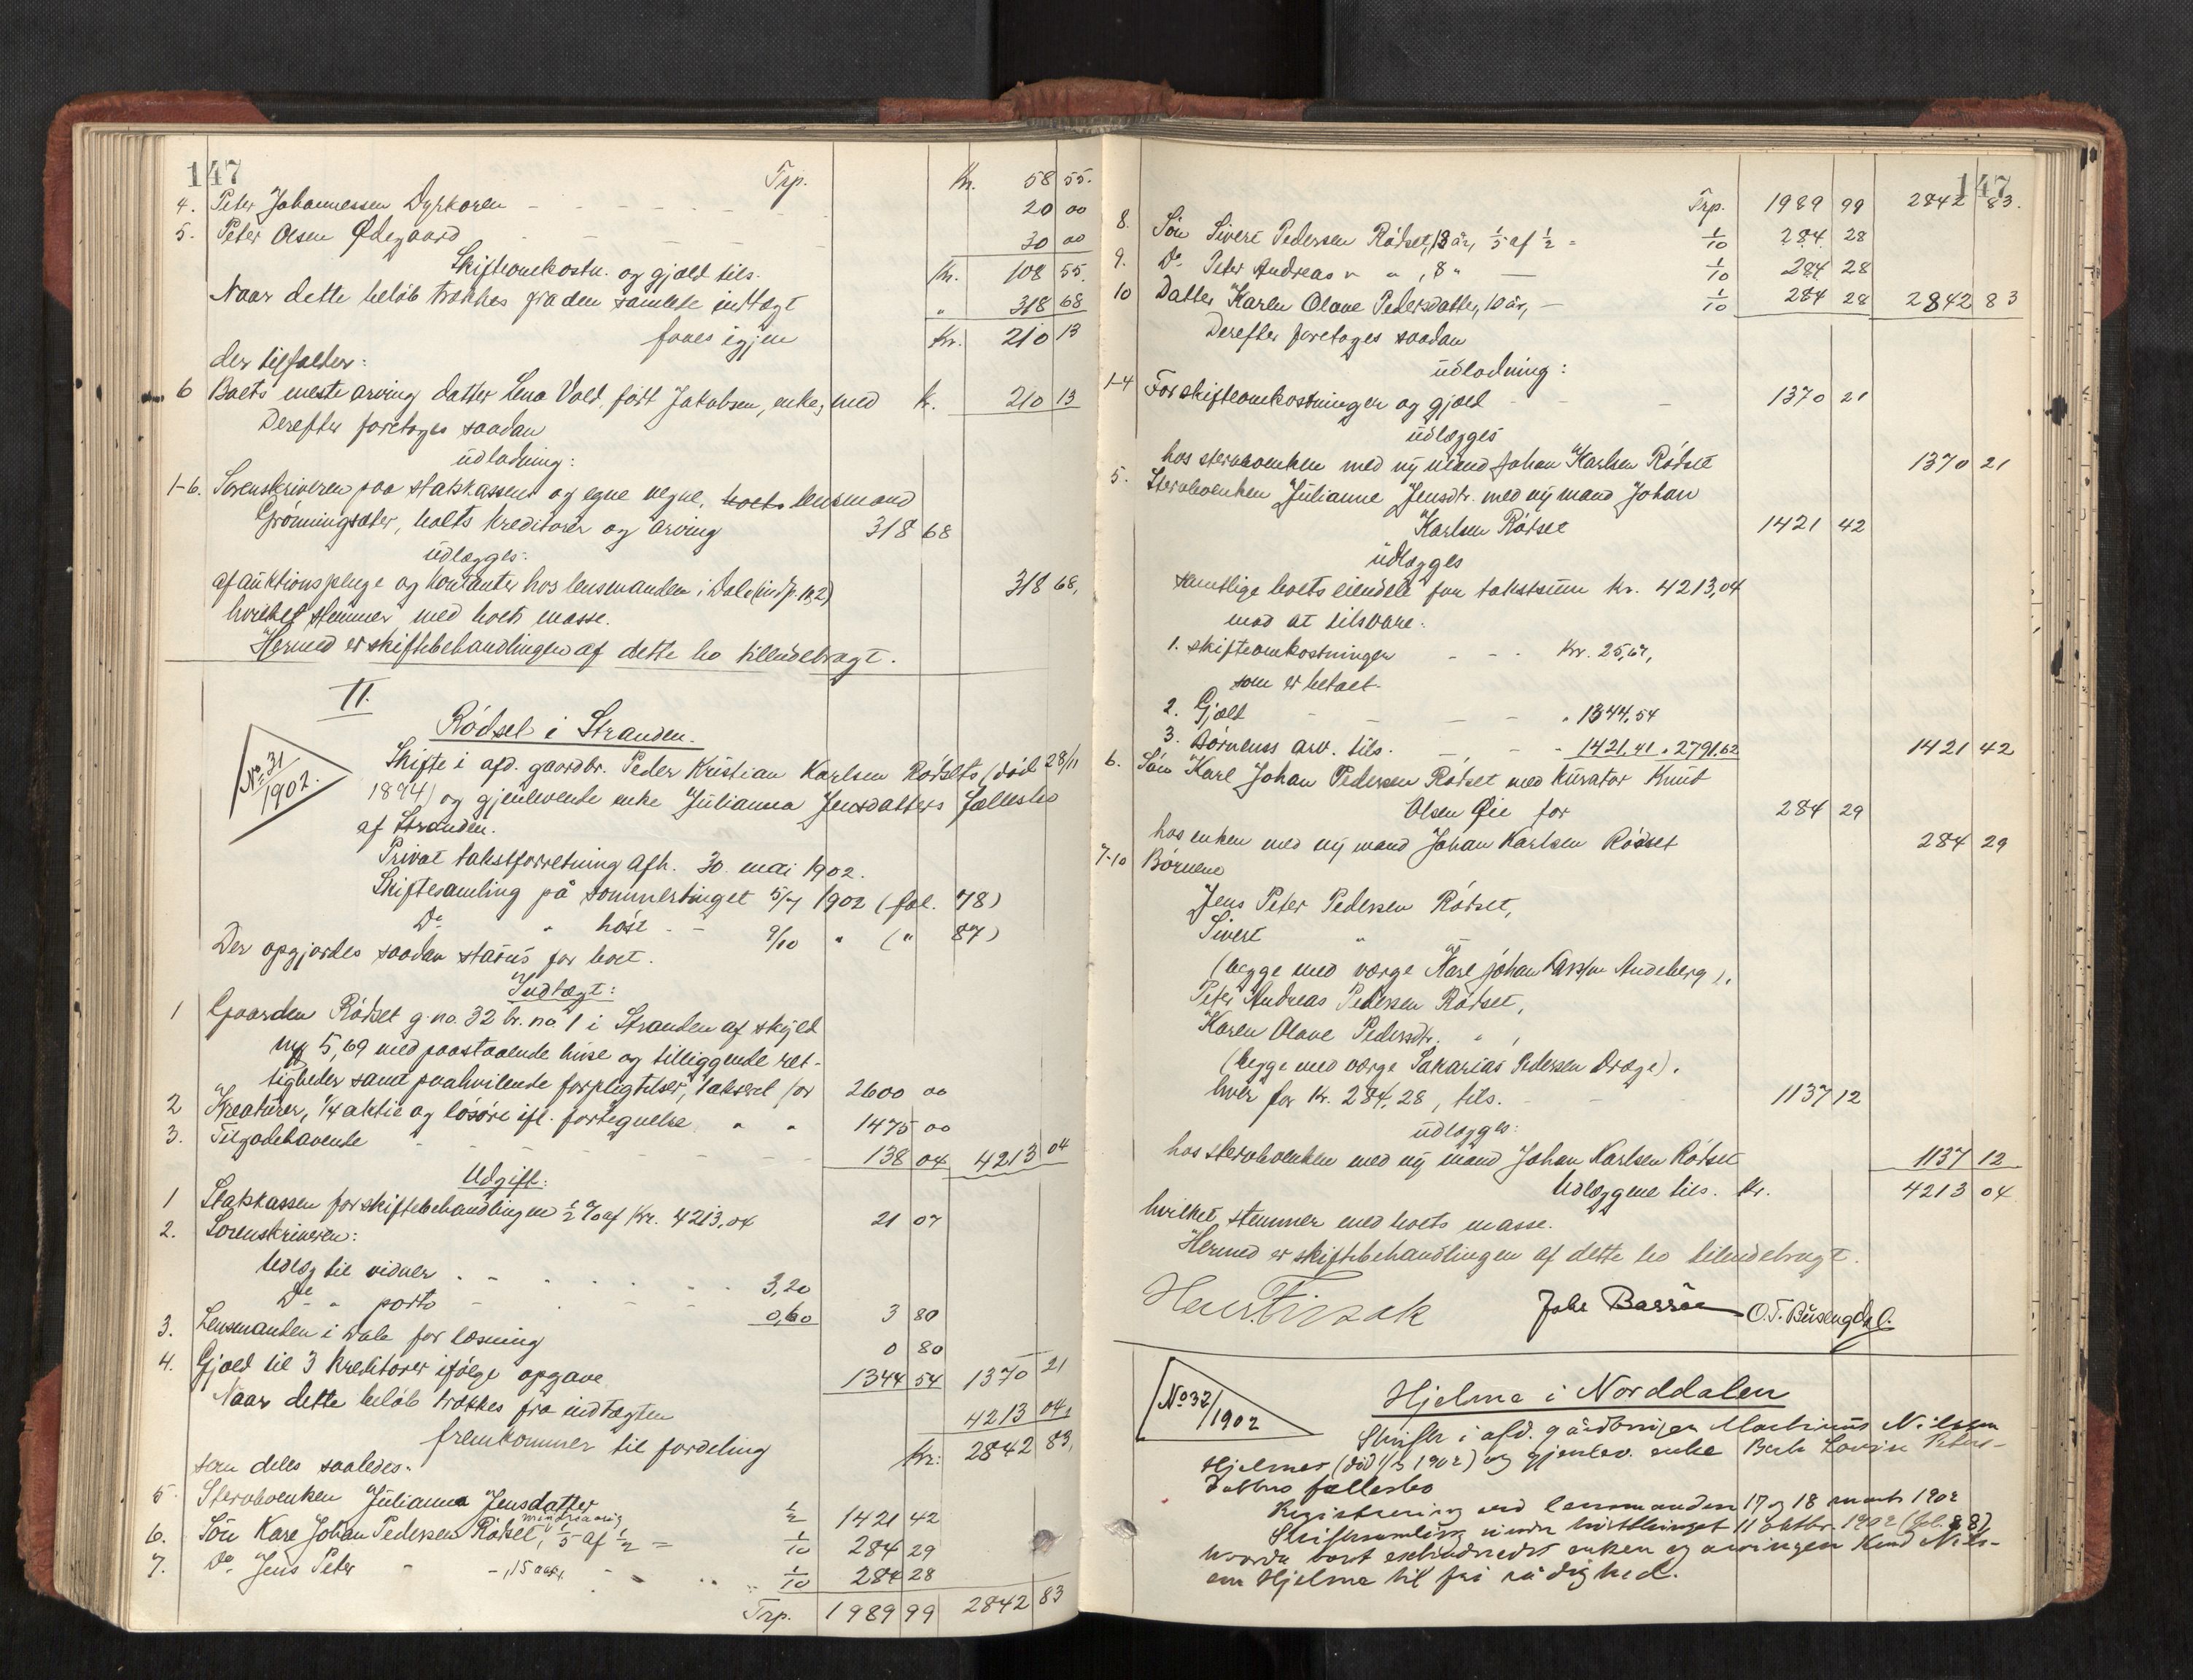 147
Trp. Kr. 58 55.
4. Peter Johannessen Dyrkoren - - - 20 00
5. Peter Olsen Ødegaard - - - 30 00
Skifteomkostn. og gjæld tils. Kr. 108 55.
Naar dette beløb trækkes fra den samlede indtægt " 318 68
faaes igjen Kr. 210 13
der tilfalder:
6 Boets eneste arving datter Lena Vold, født Jakobsen, enke, med k. 210 13
Derefter foretages saadan
udlodning:
1-6. Sorenskriveren paa statskassens og egne vegne, boets lensmand
Grønningsæter, boets kreditorer og arving 318 68
udlægges:
af auktionspenge og kontanter hos lensmanden i Dale (indt. p. 1 & 2) 318 68,
hvilket stemmer med boets masse.
Hermed er skiftebehandlingen af dette bo tilendebragt.
II.
Rødset i Stranden.
No. 31/1902.
Skifte i afd. gaardbr. Peder Kristian Karlsen Rødsets (død 28/11
1894) og gjenlevende enke Julianna Jensdatters fællesbo
af Stranden.
Privat takstforretning afh. 30. mai 1902.
Skiftesamling på sommertinget 5/7 1902 (fol. 78)
Do " høst - - 9/10 " (" 87)
Der opgjordes saadan status for boet.
Indtægt:
1 Gaarden Rødset g. no. 32 br. no. 1 i Stranden af skyld
mk 5,69 med paastaaende huse og tilliggende ret-
tigheder samt paahvilende forpligtelser, takseret for 2600 00
2 Kreaturer, 1/4 aktie og løsøre ifl. fortegnelse " " 1475 00
3. Tilgodehavende - - - 138 04 4213 04
Udgift:
1 Statskassen for skiftebehandlingen 1/2 % af Kr. 4213,04 21 07
2. Sorenskriveren:
Udlæg til vidner - - - 3,20
Do " porto - - - 0,60 3 80
3. Lensmanden i Dale for læsning 0 80
4. Gjæld til 3 kreditorer ifølge opgave 1344 54 1370 21
Naar dette beløb trækkes fra indtægten 4213 04,
fremkommer til fordeling Kr. 2842 83,
som deles saaledes:
5 Stervboenken Julianna Jensdatter 1/2 1421 42
mindreaarig
6. Søn Karl Johan Pedersen Rødset, 1/5 af 1/2 = 1/10 284 29
7. Do Jens Peter " -, 15 aar, - - 1/10 284 28
Trp. 1989 99 2842 83
147
Trp. 1989 99 2842 83.
8. Søn Sivert Pedersen Rødset, 13 år, 1/5 af 1/2 = 1/10 284 28
9. Do Peter Andreas " " , 8 " — 1/10 284 28
10 Datter Karen Olave Pedersdatter, 10 år, — 1/10 284 28 2842 83
Derefter foretages saadan
udlodning:
1-4 For skifteomkostninger og gjæld - - 1370 21
udlægges
hos stervboenken med ny mand Johan Karlsen Rødset 1370 21
5. Stervboenken Julianne Jensdtr. med ny mand Johan
Karlsen Rødset 1421 42
udlægges
samtlige boets eiendele for takstsum kr. 4213,04
mod at tilsvare:
1. skifteomkostninger - - - Kr. 25,67,
som er betalt.
2. Gjæld - - - " 1344,54
3. Børnenes arv. tils. - - - 1421,41 " 2791,62 1421 42
6. Søn Karl Johan Pedersen Rødset med kurator Knut
Olsen Øie for 284 29
hos enken med ny mand Johan Karlsen Rødset 284 29
7-10 Børnene
Jens Peter Pedersen Rødset,
Sivert " "
(begge med værge Karl Johan Andeberg),
Peter Andreas Pedersen Rødset,
Karen Olave Pedersdtr. " ,
(begge med værge Sakarias Pedersen Drage).
hver for kr. 284,28, tils. - - 1137 12
udlægges:
hos stervboenken med ny mand Johan Karlsen Rødset 1137 12
Udlæggene tils. Kr. 4213 04
hvilket stemmer med boets masse.
Hermed er skiftebehandlingen af dette bo tilendebragt.
O. T. Busengdal.
No 32/1902
Hjelme i Norddalen
Skifte i afd. gårdbruger Martinus Nilssen
Hjelmes (død 1902) og gjenlev. enke Berte Lovise Peters-
datters fællesbo
Registrering ved lensmanden 17 og 18 marts 1902
Skiftesamling under høstthinget 11 oktbr. 1902 (fol. 88)
hvorda boet extraderedes enken og arvingen Knud Nils-
sen Hjelme til fri rådighed.